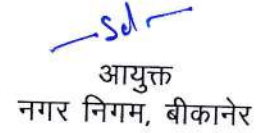 -Sd-
आयुक्त
नगर निगम, बीकानेर